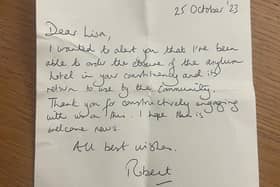 25 October '23
Dear Lisa,
I wanted to alert you that I've been
able to order the closure of the asylum
hotel in your constituency and its
return to use by the community.
Thank you for constructively engaging
with us on this. I hope this is
welcome news.
All best wishes,
Robert